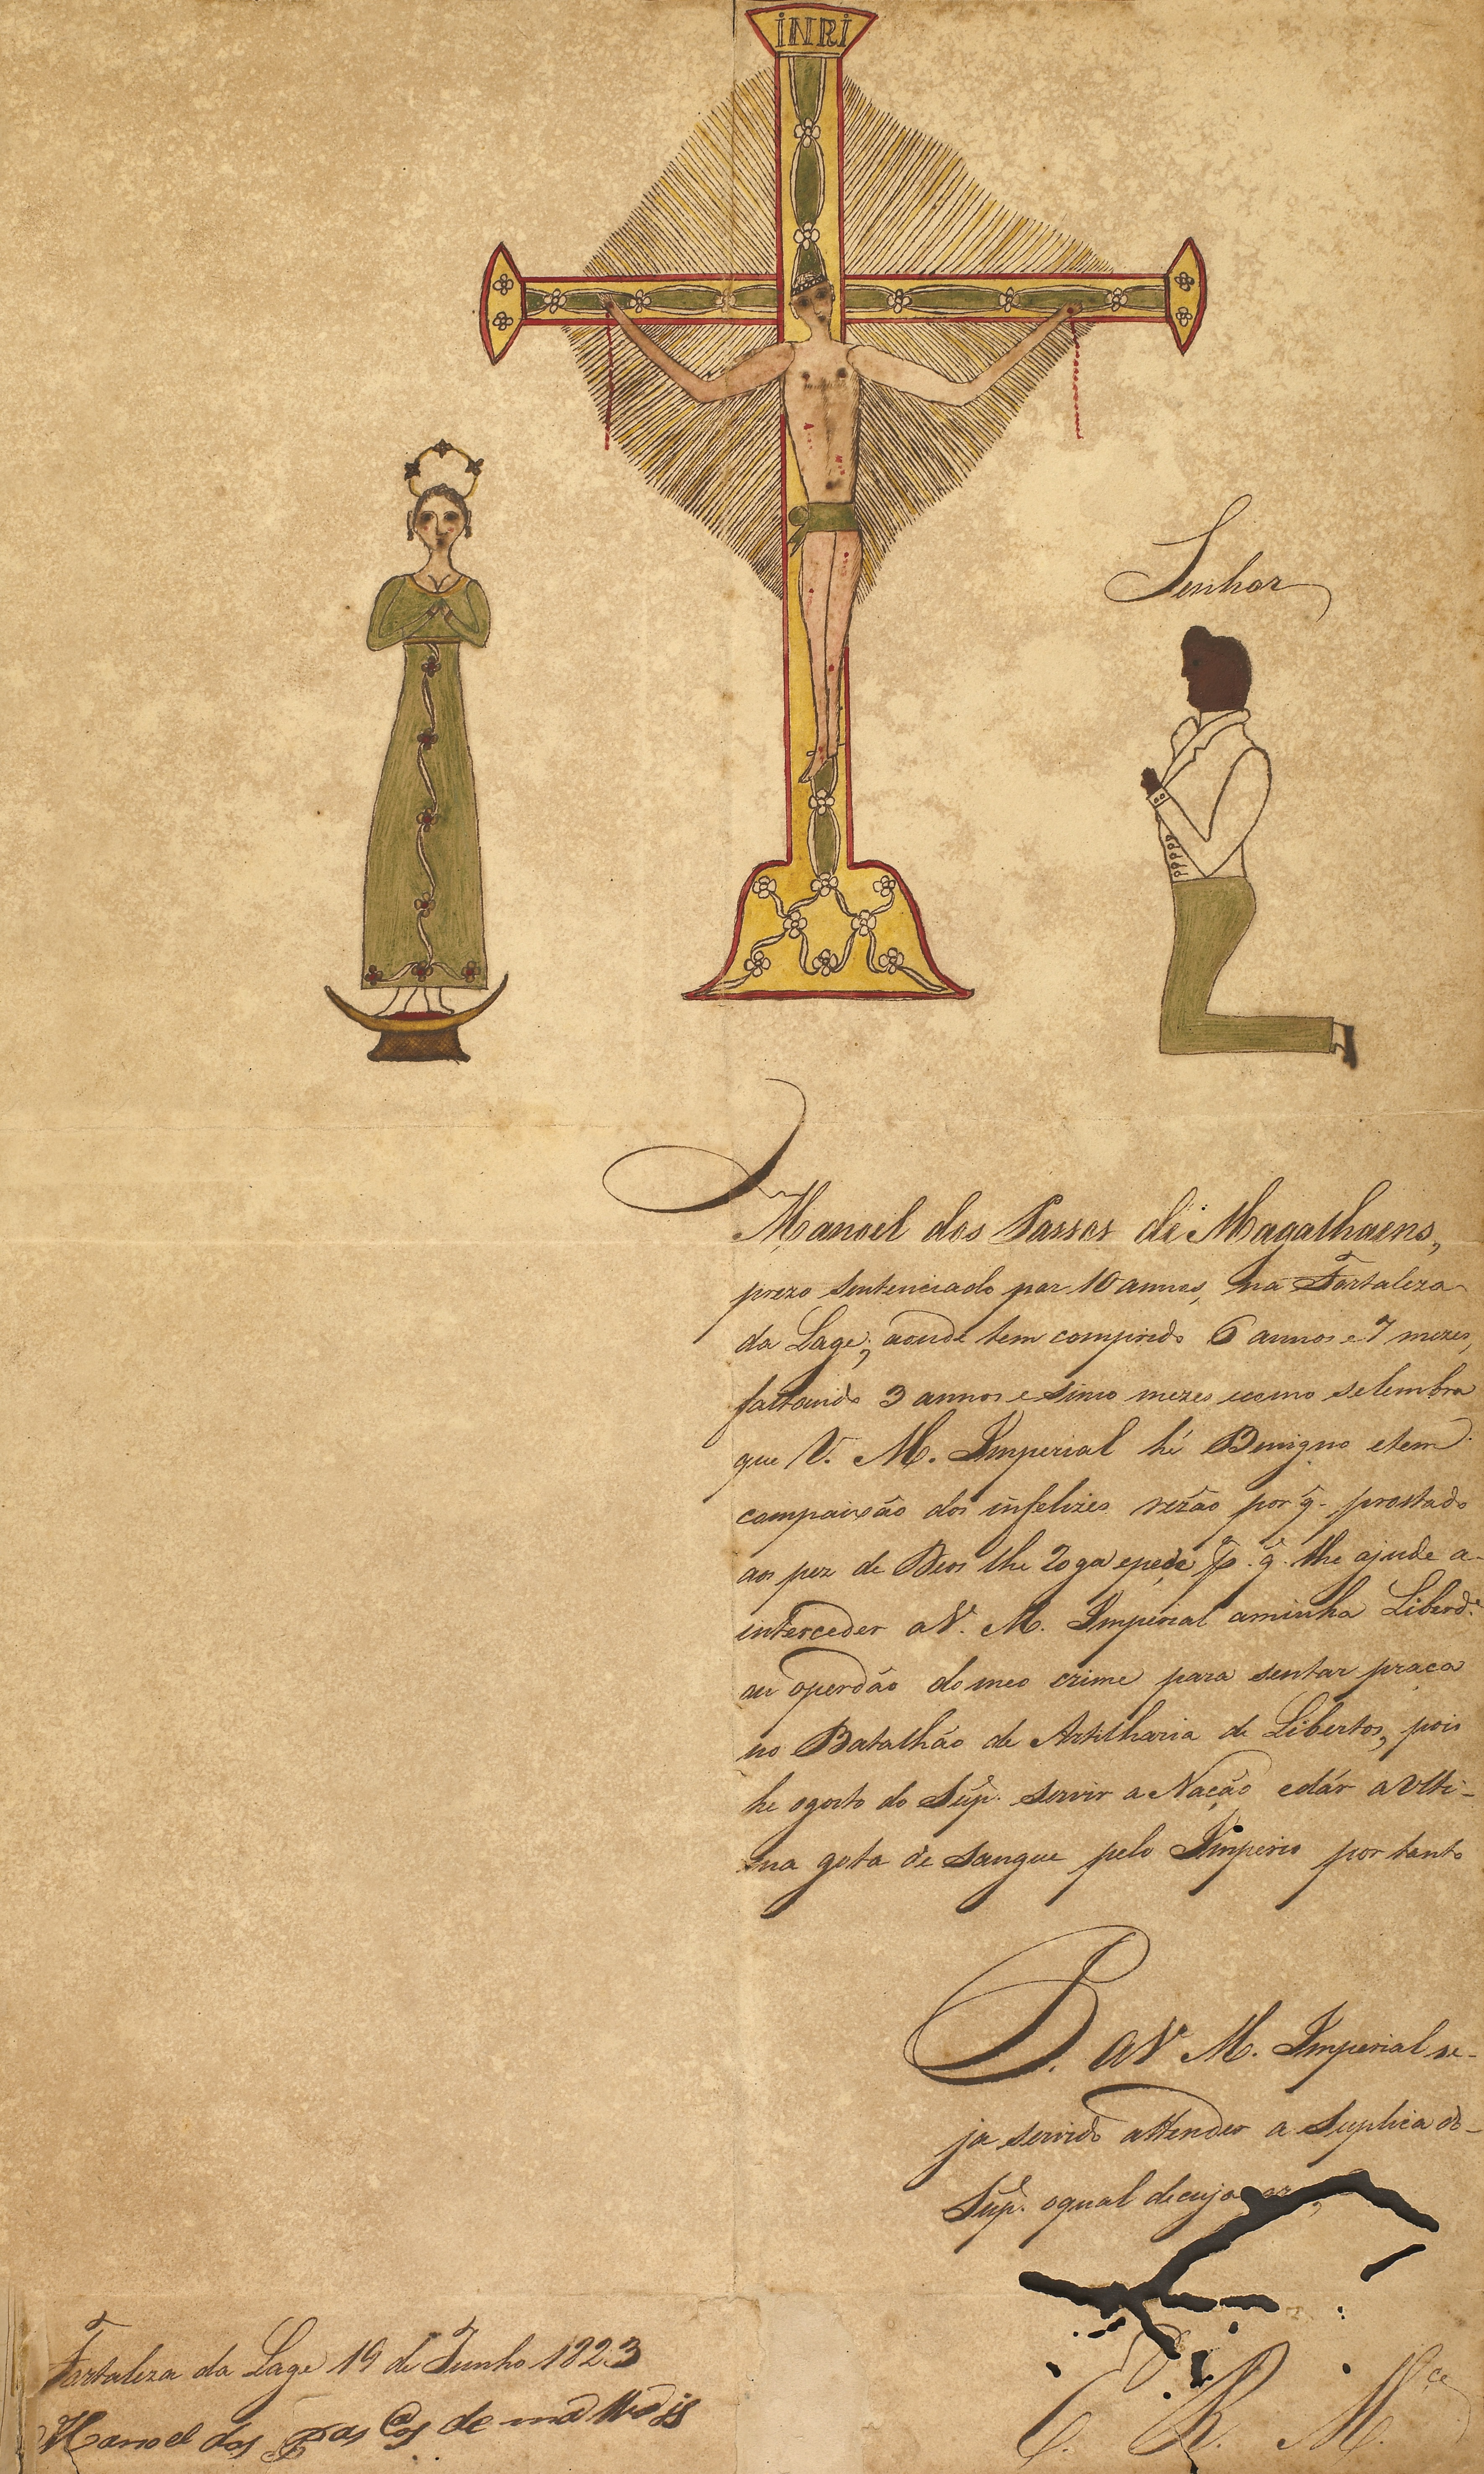 INRI
Senhor
Manoel dos Passos de Magalhaens,
prezo sentenciado por 10 annos, na Fortaleza
da Lage, aonde tem comprido 6 annos e 7 mezes,
faltando 3 annos e sinco mezes ecomo selembra
que V. M. Imperial hé Benigno etem
compaixão dos infelizes rezão por q. prostado
aos pez de Deos lhe Roga epede p. q. lhe ajude a-
interceder aV. M. Imperial aminha Liberd.e
ou operdão domeo crime para sentar praça
no Batalhão de Artilharia de Libertos, pois
he ogosto do Sup.e servir a Nação edár a Ulti-
ma gota de sangue pelo Imperio por tanto
P. aV. M. Imperial se-
ja servido attender a Suplica do-
Sup.e oqual decuja
E. R. M.ce
Fortaleza da Lage 19 de Junho 1823
Manoel dos Pasços de